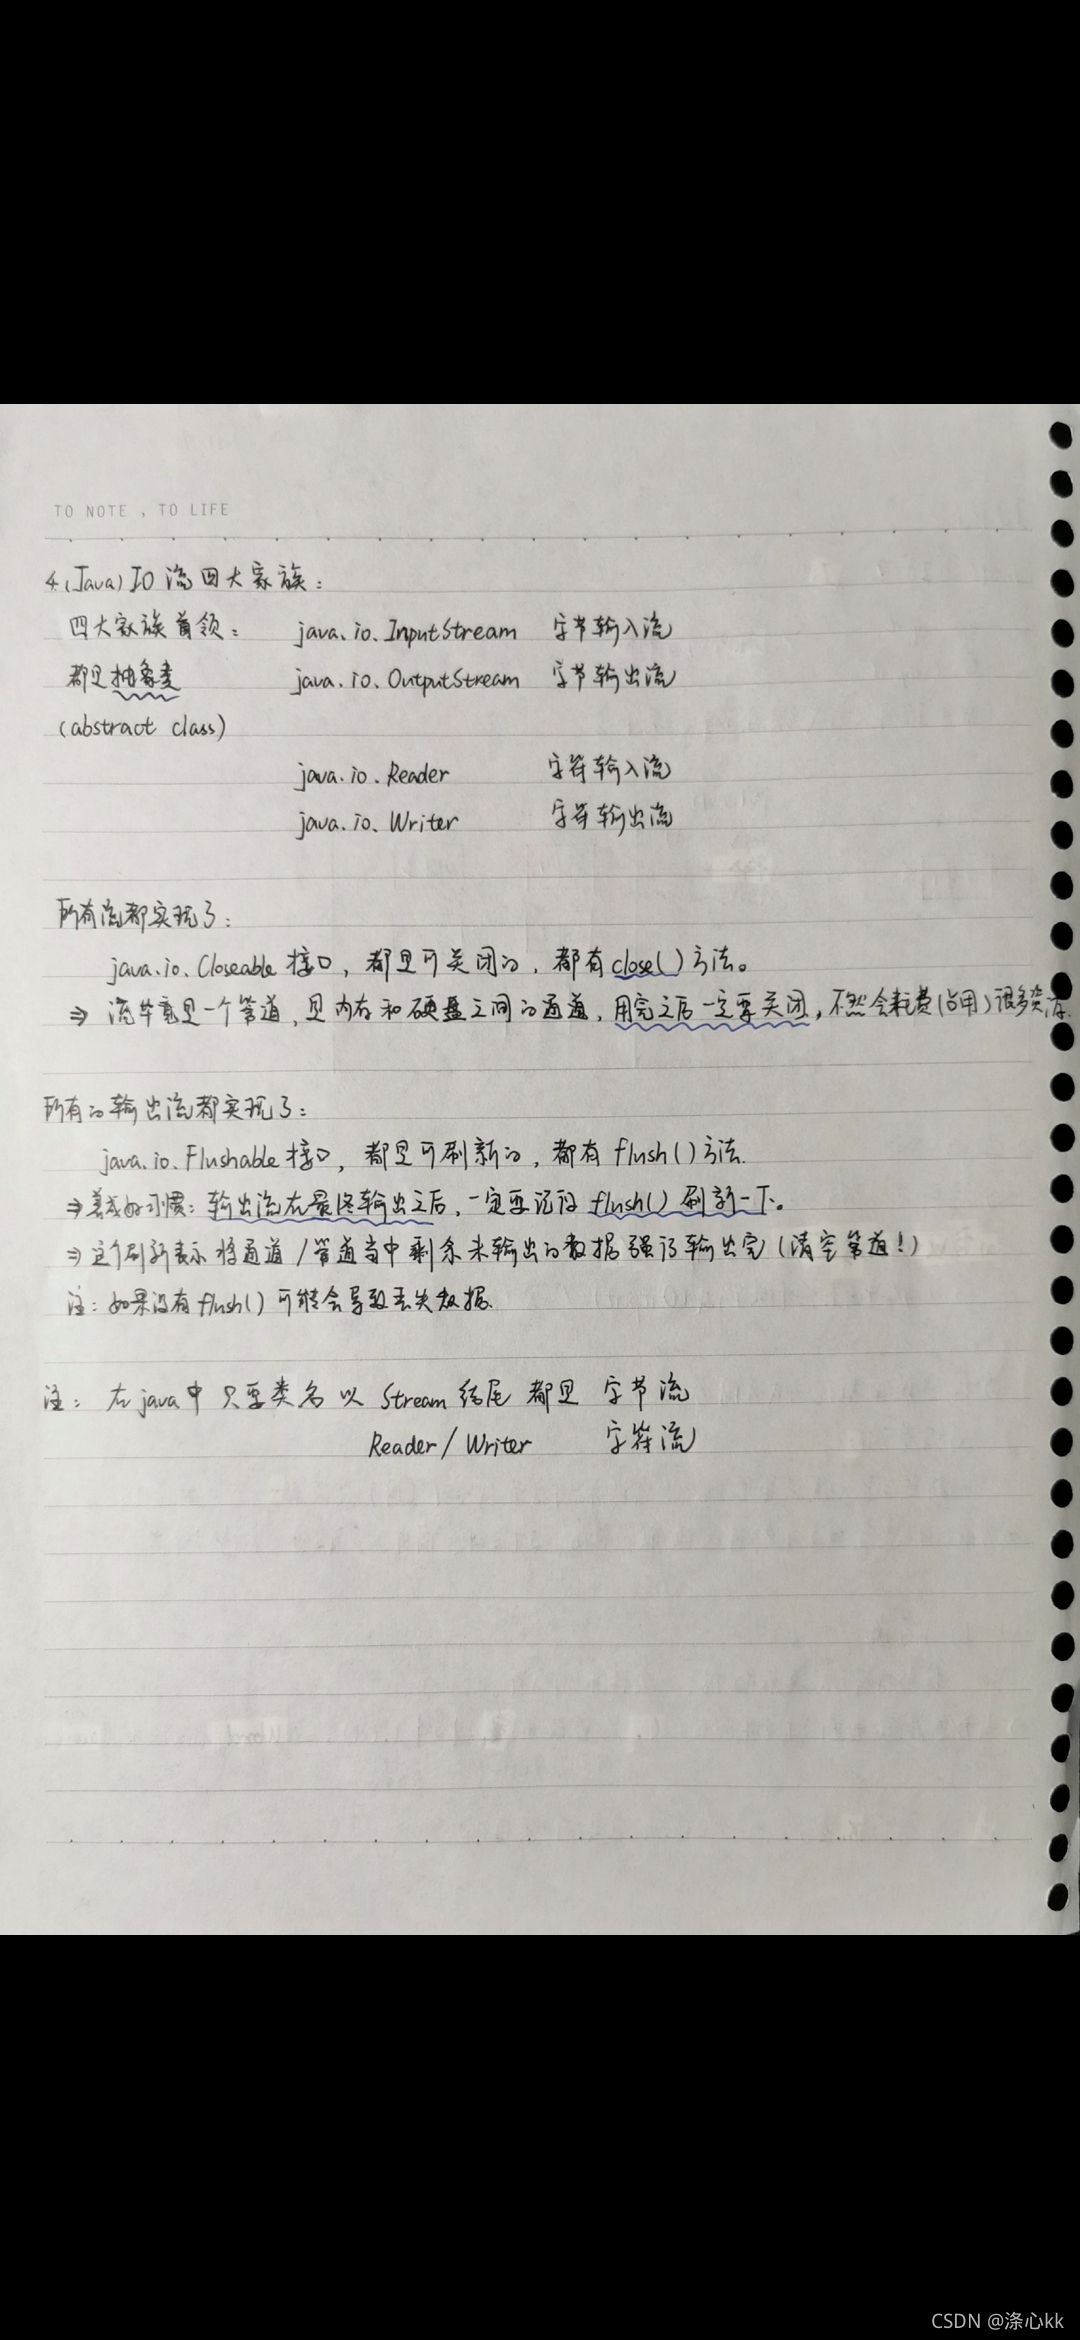 TO NOTE , TO LIFE
4.(Java) IO 流四大家族：
四大家族首领： java.io.InputStream 字节输入流
都是抽象类 java.io.OutputStream 字节输出流
(abstract class)
java.io.Reader 字符输入流
java.io.Writer 字符输出流
所有流都实现了：
java.io.Closeable 接口，都是可关闭的，都有 close() 方法。
⇒ 流毕竟是一个管道，是内存和硬盘之间的通道，用完之后一定要关闭，不然会耗费(占用)很多资源.
所有的输出流都实现了：
java.io.Flushable 接口，都是可刷新的，都有 flush() 方法.
⇒ 养成好习惯：输出流在最终输出之后，一定要记得 flush() 刷新一下。
⇒ 这个刷新表示将通道/管道当中剩余未输出的数据强行输出完(清空管道!)
注：如果没有 flush() 可能会导致丢失数据.
注：在 java 中只要类名以 Stream 结尾都是 字节流
Reader / Writer 字符流
CSDN @涤心kk